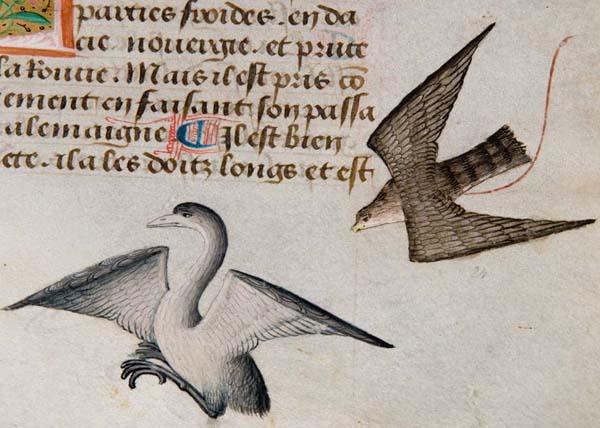 parties froides. en da
cie nouergie. et pruce
la Roucie. Mais il est pris cō
ement en faisant son passa
alemaigne Il est bien
ete. il a les doitz longs et est